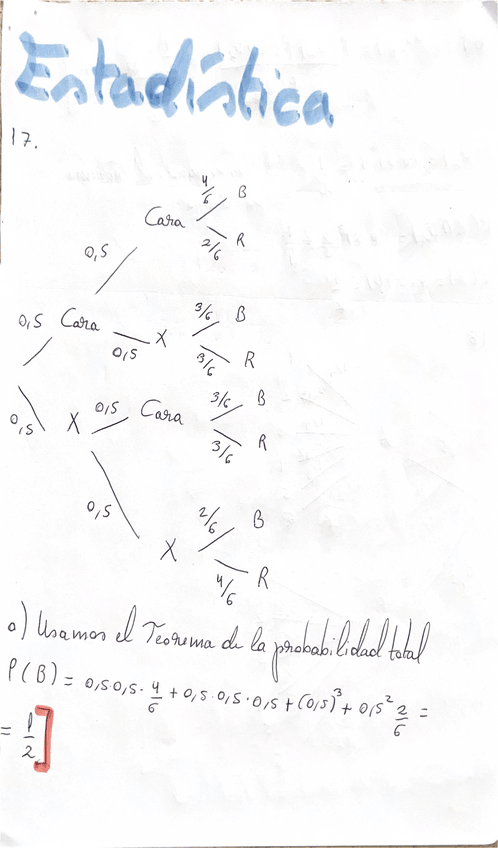 Estadística
17.
4/6 B
Cara
2/6 R
0,5
0,5 Cara
3/6 B
0,5 X
3/6 R
0,5 X
0,5 Cara
3/6 B
3/6 R
0,5
2/6 B
X
4/6 R
a) Usamos el Teorema de la probabilidad total
P(B) = 0,5·0,5· 4/6 + 0,5·0,5·0,5 + (0,5)³ + 0,5² 2/6 =
= 1/2